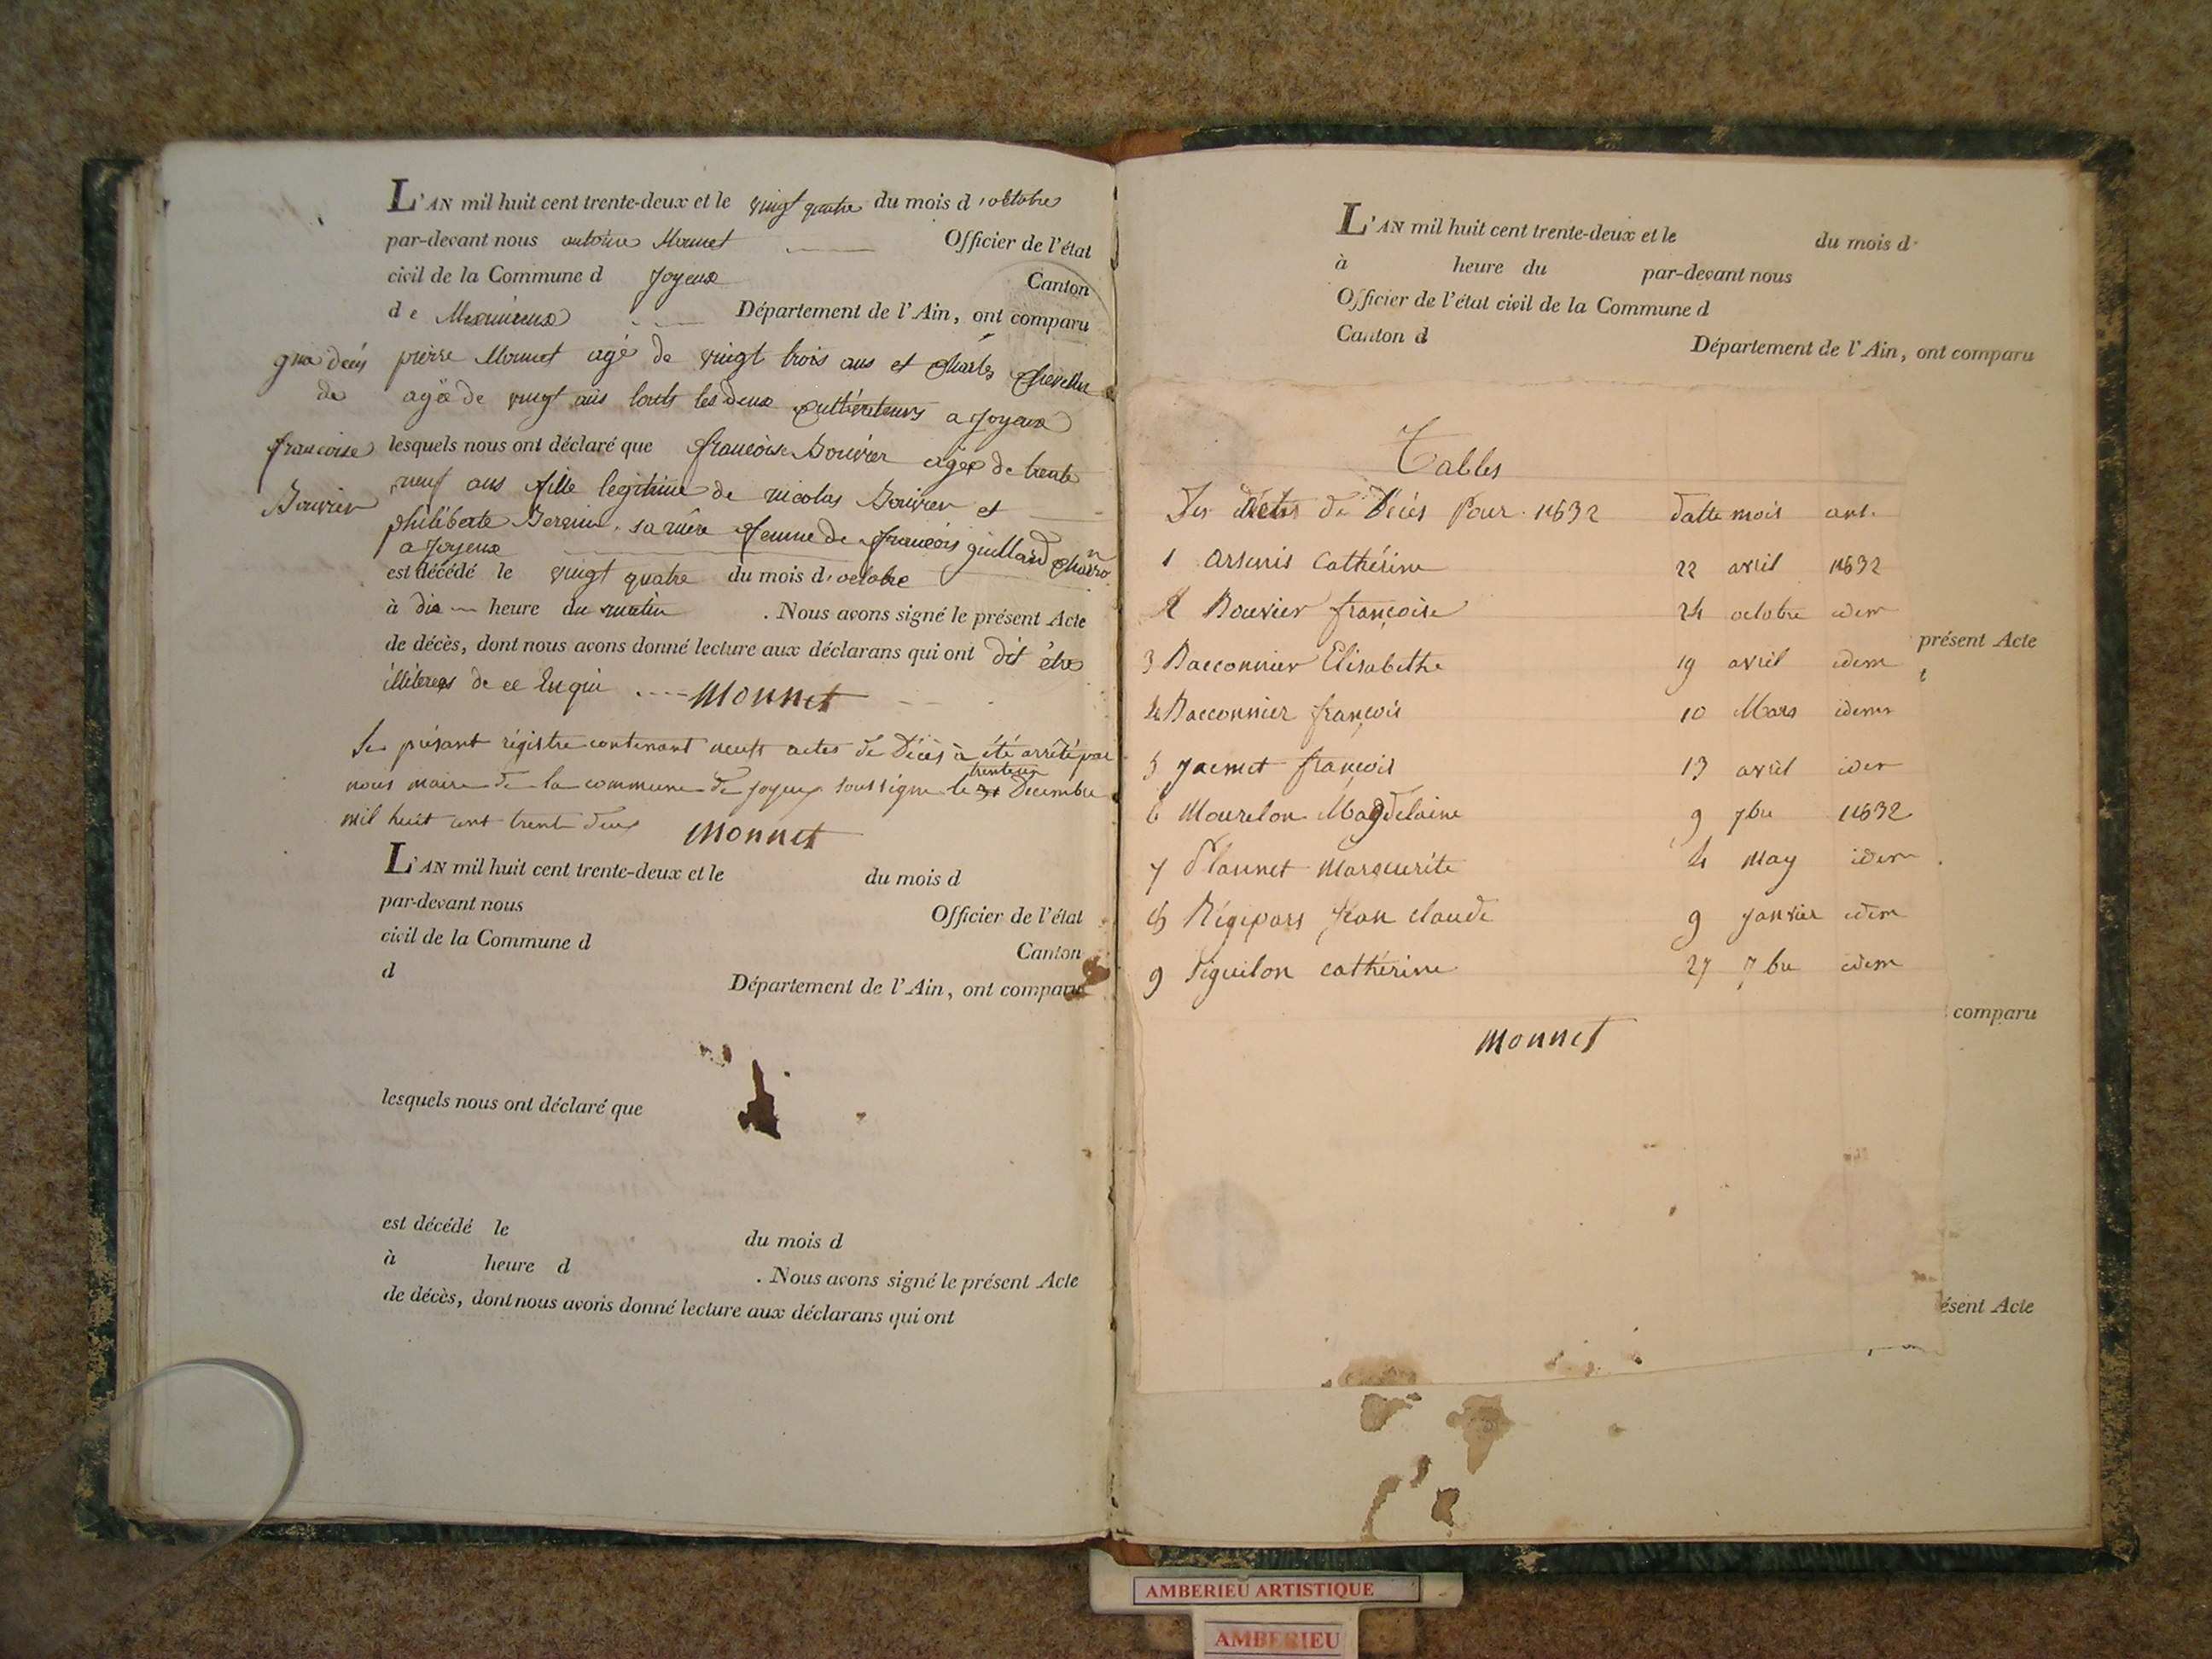 L'AN mil huit cent trente-deux et le vingt quatre du mois d'octobre
par-devant nous antoine Monnet Officier de l'état
civil de la Commune d Joyeux Canton
de Meximieux Département de l'Ain, ont comparu
pierre Monnet agé de vingt trois ans et Charles
agé de vingt ans touts les deux cultivateurs a Joyeux
lesquels nous ont déclaré que françoise Bouvier agée de trente
neuf ans fille legitime de nicolas Bouvier et
philiberte sa mère femme de françois guillard
a Joyeux
est décédé le vingt quatre du mois d'octobre
à dix heure du matin . Nous avons signé le présent Acte
de décès, dont nous avons donné lecture aux déclarans qui ont dit être
illiteres de ce Enqui Monnet
de
françoise
Bouvier
Le présant régistre contenant neuft actes de Décès à été arrêté par
nous maire de la commune de joyeux soussigné le 31 trente un Decembre
mil huit cent trente deux Monnet
L'AN mil huit cent trente-deux et le du mois d
par-devant nous Officier de l'état
civil de la Commune d Canton
d Département de l'Ain, ont comparu
lesquels nous ont déclaré que
est décédé le du mois d
à heure d . Nous avons signé le présent Acte
de décès, dont nous avons donné lecture aux déclarans qui ont
L'AN mil huit cent trente-deux et le du mois d
à heure du par-devant nous
Officier de l'état civil de la Commune d
Canton d Département de l'Ain, ont comparu
Tables
Des Actes de Décès Pour 1832 datte mois ans
1 Arsenis Cathérine 22 avril 1832
2 Bouvier françoise 24 octobre idem
présent Acte
3 Bacconnier Elisabethe 19 avril idem
4 Bacconnier françois 10 Mars idem
5 Jacmet françois 13 avril idem
6 Mourelon Magdelaine 9 7bre 1832
7 Plannet Marguerite 4 May idem
8 Régipars jean claude 9 janvier idem
9 Siguilon cathérine 27 7bre idem
comparu
Monnet
ésent Acte
AMBERIEU ARTISTIQUE
AMBERIEU